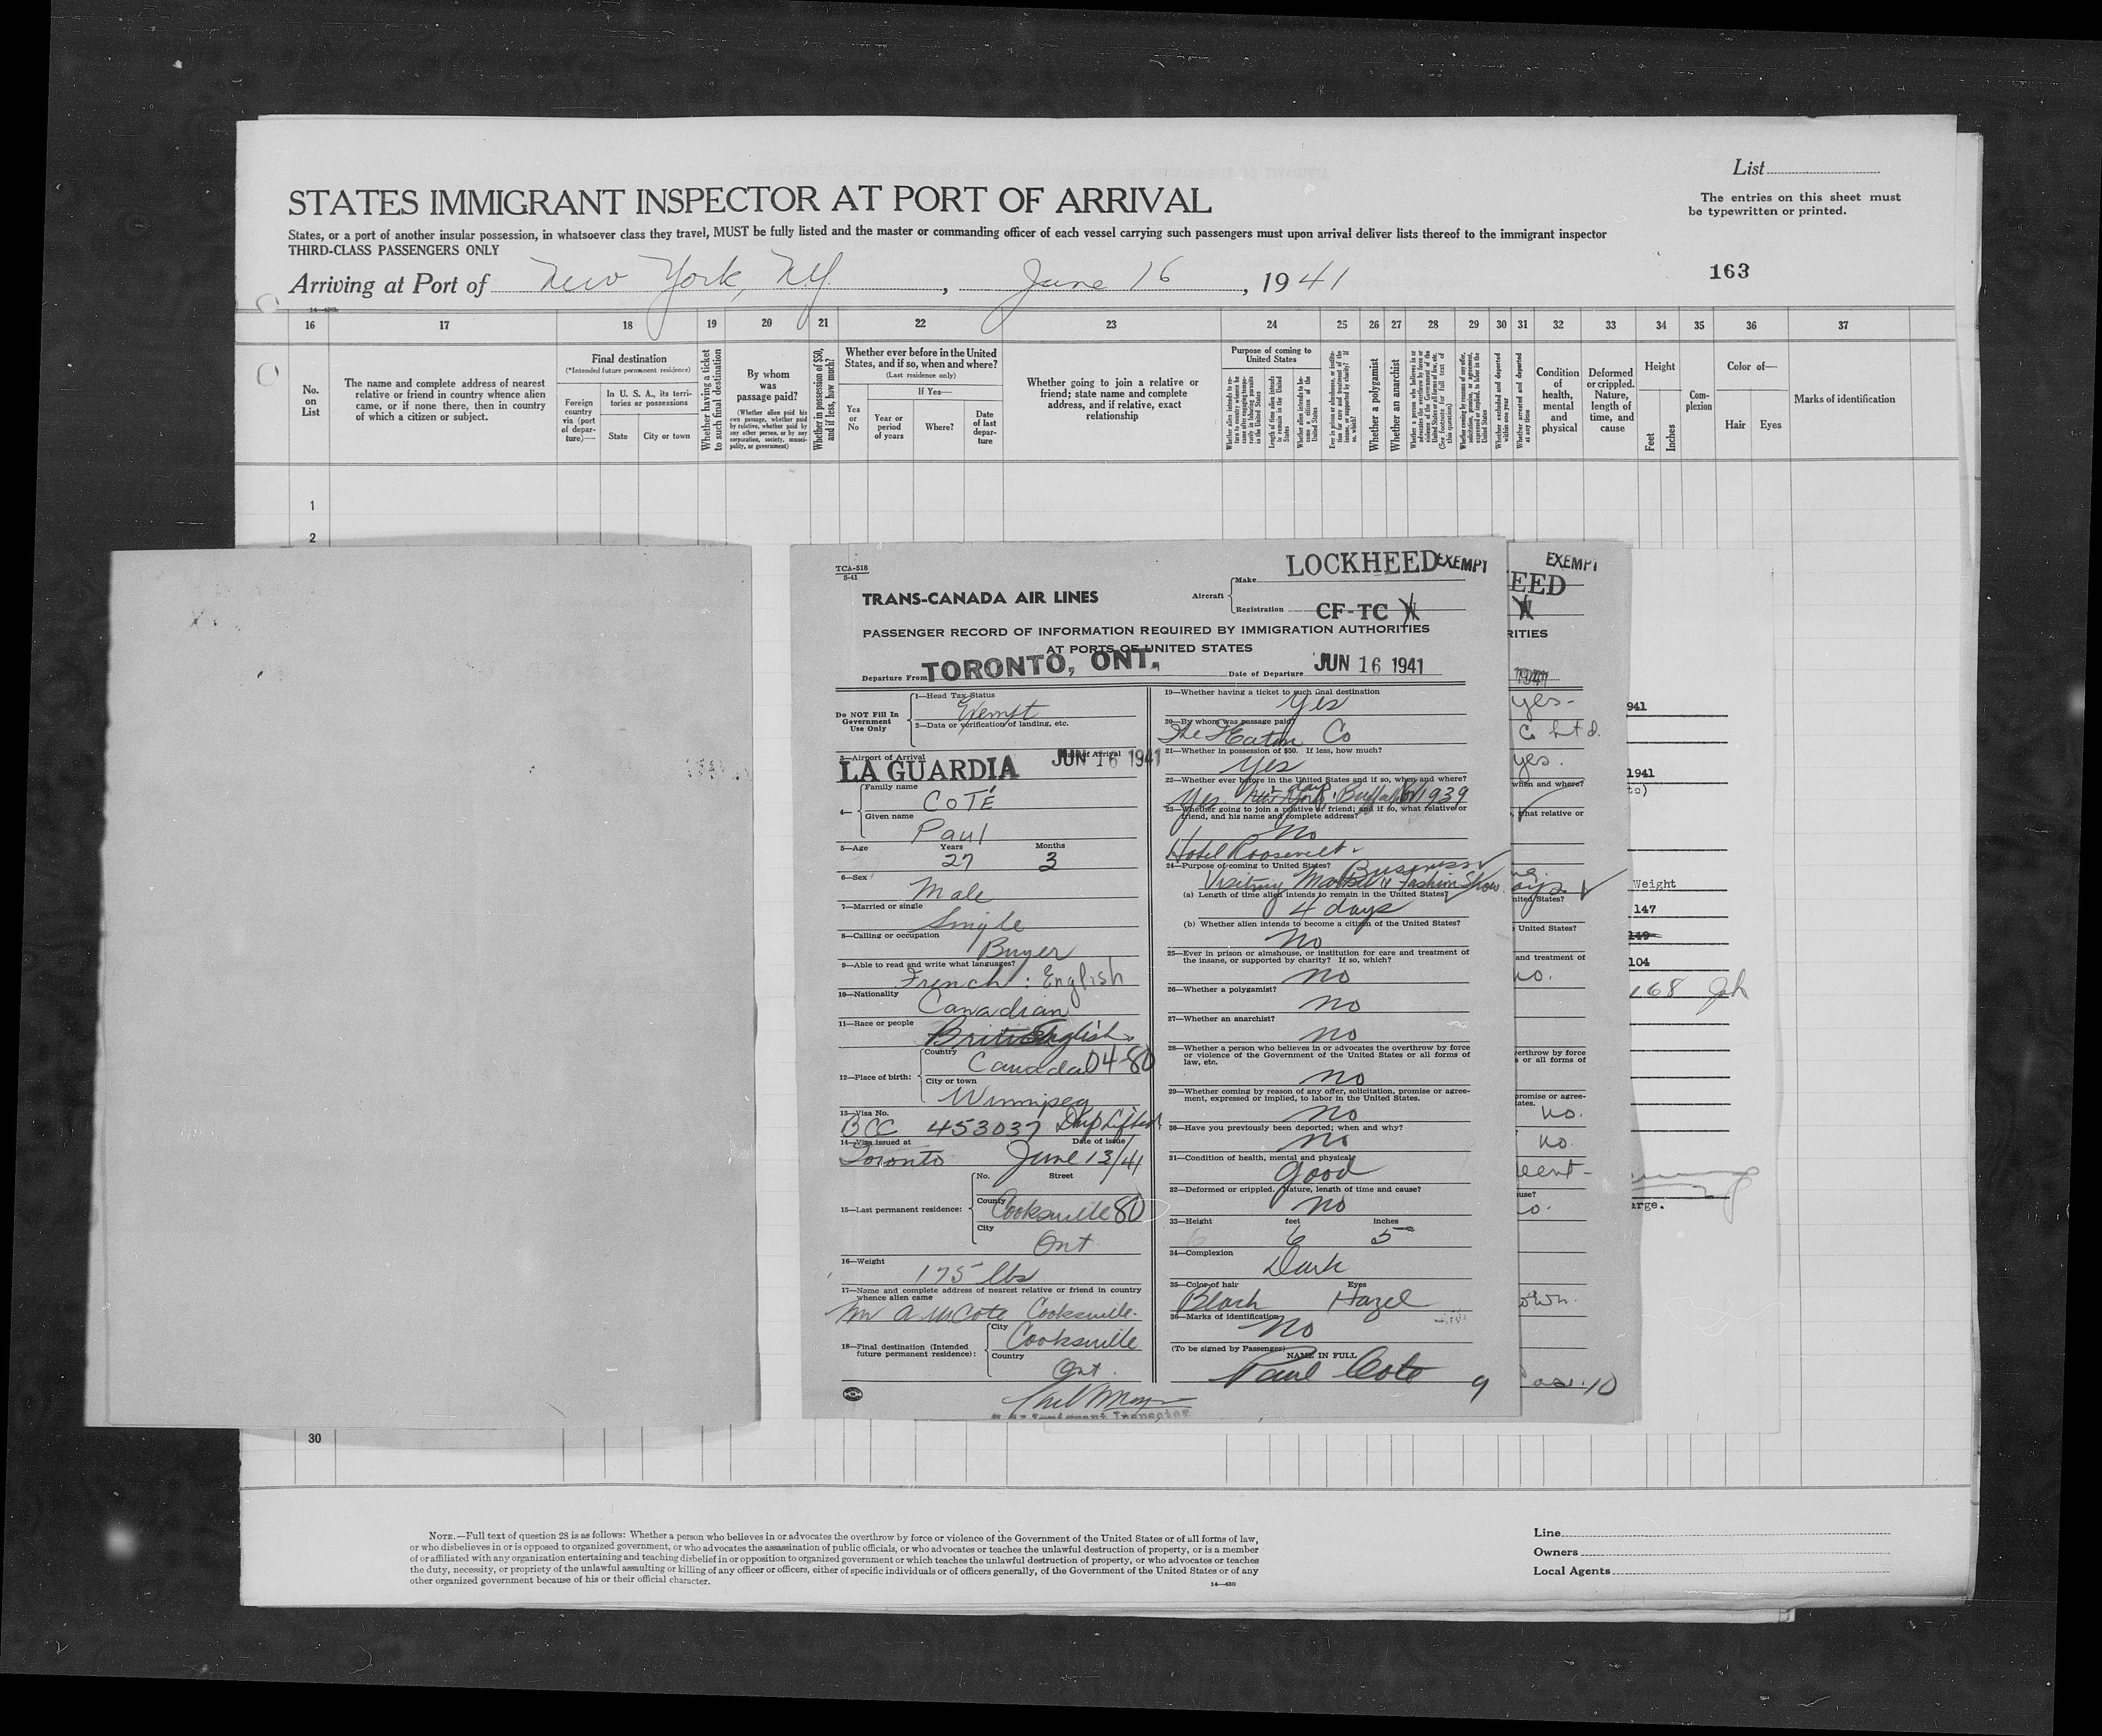 List
STATES IMMIGRANT INSPECTOR AT PORT OF ARRIVAL
The entries on this sheet must
be typewritten or printed.
States, or a port of another insular possession, in whatsoever class they travel, MUST be fully listed and the master or commanding officer of each vessel carrying such passengers must upon arrival deliver lists thereof to the immigrant inspector
THIRD-CLASS PASSENGERS ONLY
163
Arriving at Port of New York, N.Y., June 16, 1941
16 17 18 19 20 21 22 23 24 25 26 27 28 29 30 31 32 33 34 35 36 37
No. on List
The name and complete address of nearest relative or friend in country whence alien came, or if none there, then in country of which a citizen or subject.
Final destination
(*Intended future permanent residence)
Foreign country via (port of departure)—
In U. S. A., its territories or possessions
State
City or town
Whether having a ticket to such final destination
By whom was passage paid?
(Whether alien paid his own passage, whether paid by relative, whether paid by any other person, or by any corporation, society, municipality, or government)
Whether in possession of $50, and if less, how much?
Whether ever before in the United States, and if so, when and where?
(Last residence only)
Yes or No
If Yes—
Year or period of years
Where?
Date of last departure
Whether going to join a relative or friend; state name and complete address, and if relative, exact relationship
Purpose of coming to United States
Length of time alien intends to remain in the United States
Whether alien intends to become a citizen of the United States
Whether a polygamist
Whether an anarchist
Whether excluded and deported within one year
Whether arrested and deported at any time
Condition of health, mental and physical
Deformed or crippled. Nature, length of time, and cause
Height
Feet
Inches
Complexion
Color of—
Hair
Eyes
Marks of identification
1
2
TCA-518
5-41
TRANS-CANADA AIR LINES
Aircraft
Make LOCKHEED EXEMPT
Registration CF-TC
PASSENGER RECORD OF INFORMATION REQUIRED BY IMMIGRATION AUTHORITIES
AT PORTS OF UNITED STATES
Departure From TORONTO, ONT.
Date of Departure JUN 16 1941
Do NOT Fill In Government Use Only
1—Head Tax Status
Exempt
2—Data or verification of landing, etc.
3—Airport of Arrival
LA GUARDIA
Date of Arrival
JUN 16 1941
4—
Family name
COTÉ
Given name
Paul
5—Age Years Months
27 3
6—Sex
Male
7—Married or single
Single
8—Calling or occupation
Buyer
9—Able to read and write what languages?
French : English
10—Nationality
Canadian
11—Race or people
British English
12—Place of birth:
Country
Canada 04-80
City or town
Winnipeg
13—Visa No.
BCC 453037
14—Visa issued at Date of issue
Toronto June 13/41
15—Last permanent residence:
No. Street
County
Cooksville 80
City
Ont
16—Weight
175 lbs
17—Name and complete address of nearest relative or friend in country whence alien came
Cote Cooksville.
18—Final destination (Intended future permanent residence):
City
Cooksville
Country
Ont.
Immigrant Inspector
19—Whether having a ticket to such final destination
Yes
20—By whom was passage paid
The T Eaton Co
21—Whether in possession of $50. If less, how much?
Yes
22—Whether ever before in the United States and if so, when and where?
Yes New York, Buffalo 1939
23—Whether going to join a relative or friend; and if so, what relative or friend, and his name and complete address?
No
Hotel Roosevelt
24—Purpose of coming to United States?
Business
Visiting Market & Fashion Show
(a) Length of time alien intends to remain in the United States?
4 days
(b) Whether alien intends to become a citizen of the United States?
no
25—Ever in prison or almshouse, or institution for care and treatment of the insane, or supported by charity? If so, which?
no
26—Whether a polygamist?
no
27—Whether an anarchist?
no
28—Whether a person who believes in or advocates the overthrow by force or violence of the Government of the United States or all forms of law, etc.
no
29—Whether coming by reason of any offer, solicitation, promise or agreement, expressed or implied, to labor in the United States.
no
30—Have you previously been deported; when and why?
no
31—Condition of health, mental and physical
good
32—Deformed or crippled. Nature, length of time and cause?
no
33—Height feet inches
6 5
34—Complexion
Dark
35—Color of hair Eyes
Black Hazel
36—Marks of identification
No
(To be signed by Passenger)
NAME IN FULL
Paul Cote
9
EXEMPT
EED
RITIES
1941
yes-
Co Ltd.
yes.
when and where?
what relative or
nited States?
United States?
and treatment of
no.
verthrow by force
s or all forms of
promise or agree-
ates.
no.
no.
use?
own.
10
941
1941
Weight
147
149
104
168
arge.
30
NOTE.—Full text of question 28 is as follows: Whether a person who believes in or advocates the overthrow by force or violence of the Government of the United States or of all forms of law,
or who disbelieves in or is opposed to organized government, or who advocates the assassination of public officials, or who advocates or teaches the unlawful destruction of property, or is a member
of or affiliated with any organization entertaining and teaching disbelief in or opposition to organized government or which teaches the unlawful destruction of property, or who advocates or teaches
the duty, necessity, or propriety of the unlawful assaulting or killing of any officer or officers, either of specific individuals or of officers generally, of the Government of the United States or of any
other organized government because of his or their official character.
14—430
Line
Owners
Local Agents